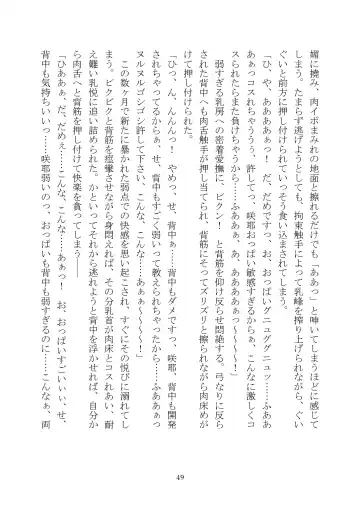 媚に撓み、肉イボまみれの地面と擦れるだけでも「ああっ」と呻いてしまうほどに感じて
しまう。たまらず逃げようとしても、拘束触手によって乳峰を搾り上げられながら、ぐい
ぐいと前方に押し付けられていっそう食い込まされてしまう。
「ひゃ、ああああぁっ！　だ、だめですっ、お、おっぱいグニュググニュッ……ふああ
あぁっコスれちゃううぅ、許してっ、咲耶おっぱい敏感すぎるからぁ、こんなに激しくコ
スられたらまた負けちゃうから～～～ふああぁぁ、あ、ああああぁっ～～～～！」
弱すぎる乳房への密着愛撫に、ビクン！　と背筋を仰け反らせ悶絶する。弓なりに反ら
された背中へも肉舌触手が押し当てられ、背筋にそってズリズリと擦られながら肉床めが
けて押し付けられる。
「ひっ、ん、んんんっ！　やめっ、せ、背中ぁ……背中もダメですっ、咲耶、背中も開発
されちゃってるからぁ、せ、背中もすごく弱いって教えられちゃったから……ふああぁっ
ヌルヌルゴシゴシ許して下さい、こんな、こんな……あぁぁ～～～～！」
この数ヶ月で新たに暴かれた弱点での快感を思い起こされ、すぐにその悦びに溺れてし
まう。ビクビクと背筋を痙攣させながら身悶えれば、その分乳首が肉床とコスれあい、耐
え難い乳悦に追い詰められる。かといってそれから逃れようと背中を浮かせれば、自分か
ら肉舌へと押し付けて快楽を貪ってしまう――
「ひああぁ、だ、だめぇ……こんな、こんな……あぁっ！　お、おっぱいすごいぃぃ、せ、
背中も気持ちいいっ……咲耶弱いのっ、おっぱいも背中も弱すぎるのに……こんなぁ、両
49